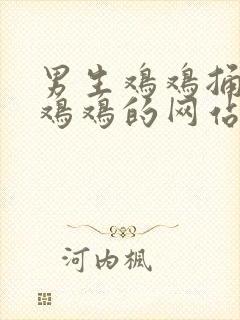 男生鸡鸡捅
鸡鸡的网站
河内楓